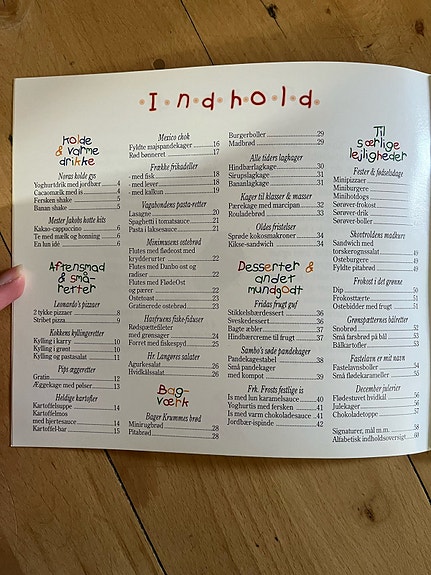 Indhold
Kolde
& varme
drikke
Noras kolde gys
Yoghurtdrik med jordbær 4
Cacaomælk med is 4
Fersken shake 5
Banan shake 5
Mester Jakobs hotte kits
Kakao-cappuccino 6
Te med mælk og honning 6
En lun idé 6
Aftensmad
& små-
retter
Leonardo's pizzaer
2 tykke pizzaer 8
Stribet pizza 9
Kokkens kyllingeretter
Kylling i karry 10
Kylling i grønt 10
Kylling og pastasalat 11
Pips æggeretter
Gratin 12
Æggekage med pølser 13
Heldige kartofler
Kartoffelsuppe 14
Kartoffelmos
med hjertesauce 14
Kartoffel-bar 15
Mexico chok
Fyldte majspandekager 16
Rød bønneret 17
Frække frikadeller
- med fisk 18
- med lever 18
- med kalkun 19
Vagabondens pasta-retter
Lasagne 20
Spaghetti i tomatsauce 21
Pasta i laksesauce 21
Minimusens ostebrød
Flutes med flødeost med
krydderurter 22
Flutes med Danbo ost og
radiser 22
Flutes med FlødeOst
og pærer 22
Ostetoast 23
Gratinerede ostebrød 23
Havfruens fiske-fiduser
Rødspættefileter
med grønsager 24
Forret med fiskespyd 25
Hr. Langøres salater
Agurkesalat 26
Hvidkålssalat 26
Bag-
værk
Bager Krummes brød
Minirugbrød 28
Pitabrød 28
Burgerboller 29
Madbrød 29
Alle tiders lagkager
Hindbærlagkage 30
Sirupslagkage 31
Bananlagkage 31
Kager til klasser & masser
Pærekage med marcipan 32
Rouladebrød 33
Oldes fristelser
Sprøde kokosmakroner 34
Kikse-sandwich 34
Desserter &
andet
mundgodt
Fridas frugt guf
Stikkelsbærdessert 36
Sveskedessert 36
Bagte æbler 37
Hindbærcreme til frugt 37
Sambo's søde pandekager
Pandekagestabel 38
Små pandekager
med kompot 39
Frk. Frosts festlige is
Is med lun karamelsauce 40
Yoghurtis med fersken 41
Is med varm chokoladesauce 41
Jordbær-ispinde 42
Til
særlige
lejligheder
Fester & fødselsdage
Minipizzaer
Miniburgere
Minihotdogs
Sørøver-frokost
Sørøver-drik
Sørøver-boller
Skovtroldens madkurv
Sandwich med
torskerognssalat 49
Osteburgere 49
Fyldte pitabrød 49
Frokost i det grønne
Dip 50
Frokosttærte 51
Ostesnitter med frugt 51
Grønspætternes bålretter
Snobrød 52
Små farsbrød på bål 53
Bålkartofler 53
Fastelavn er mit navn
Fastelavnsboller 54
Små flødekarameller 55
December julerier
Flødestuvet hvidkål 56
Julekager 56
Chokoladetoppe 57
Signaturer, mål m.m. 58
Alfabetisk indholdsoversigt 60